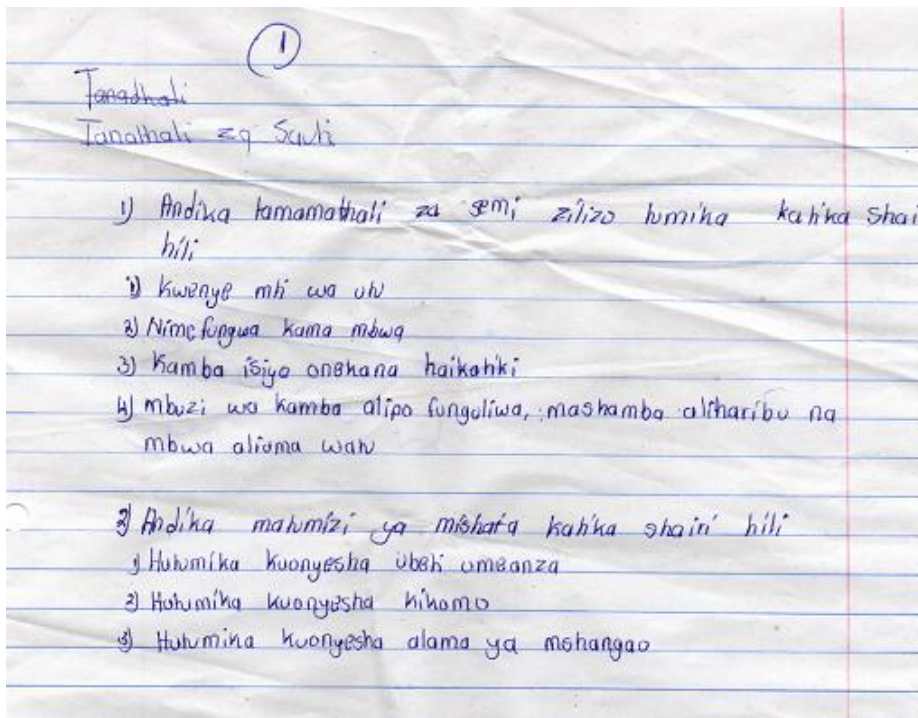 1
Tanadhali
Tanathali za Sauti
1) Andika tamamathali za semi zilizo tumika katika shai
hili
1) Kwenye mti wa utu
2) Nimefungwa kama mbwa
3) Kamba isiyo onekana haikatiki
4) mbuzi wa kamba alipo funguliwa, mashamba alitharibu na
mbwa aliuma watu
2) Andika matumizi ya mishata katika shairi hili
1) Hutumika kuonyesha ubeti umeanza
2) Hutumika kuonyesha kikomo
3) Hutumika kuonyesha alama ya mshangao